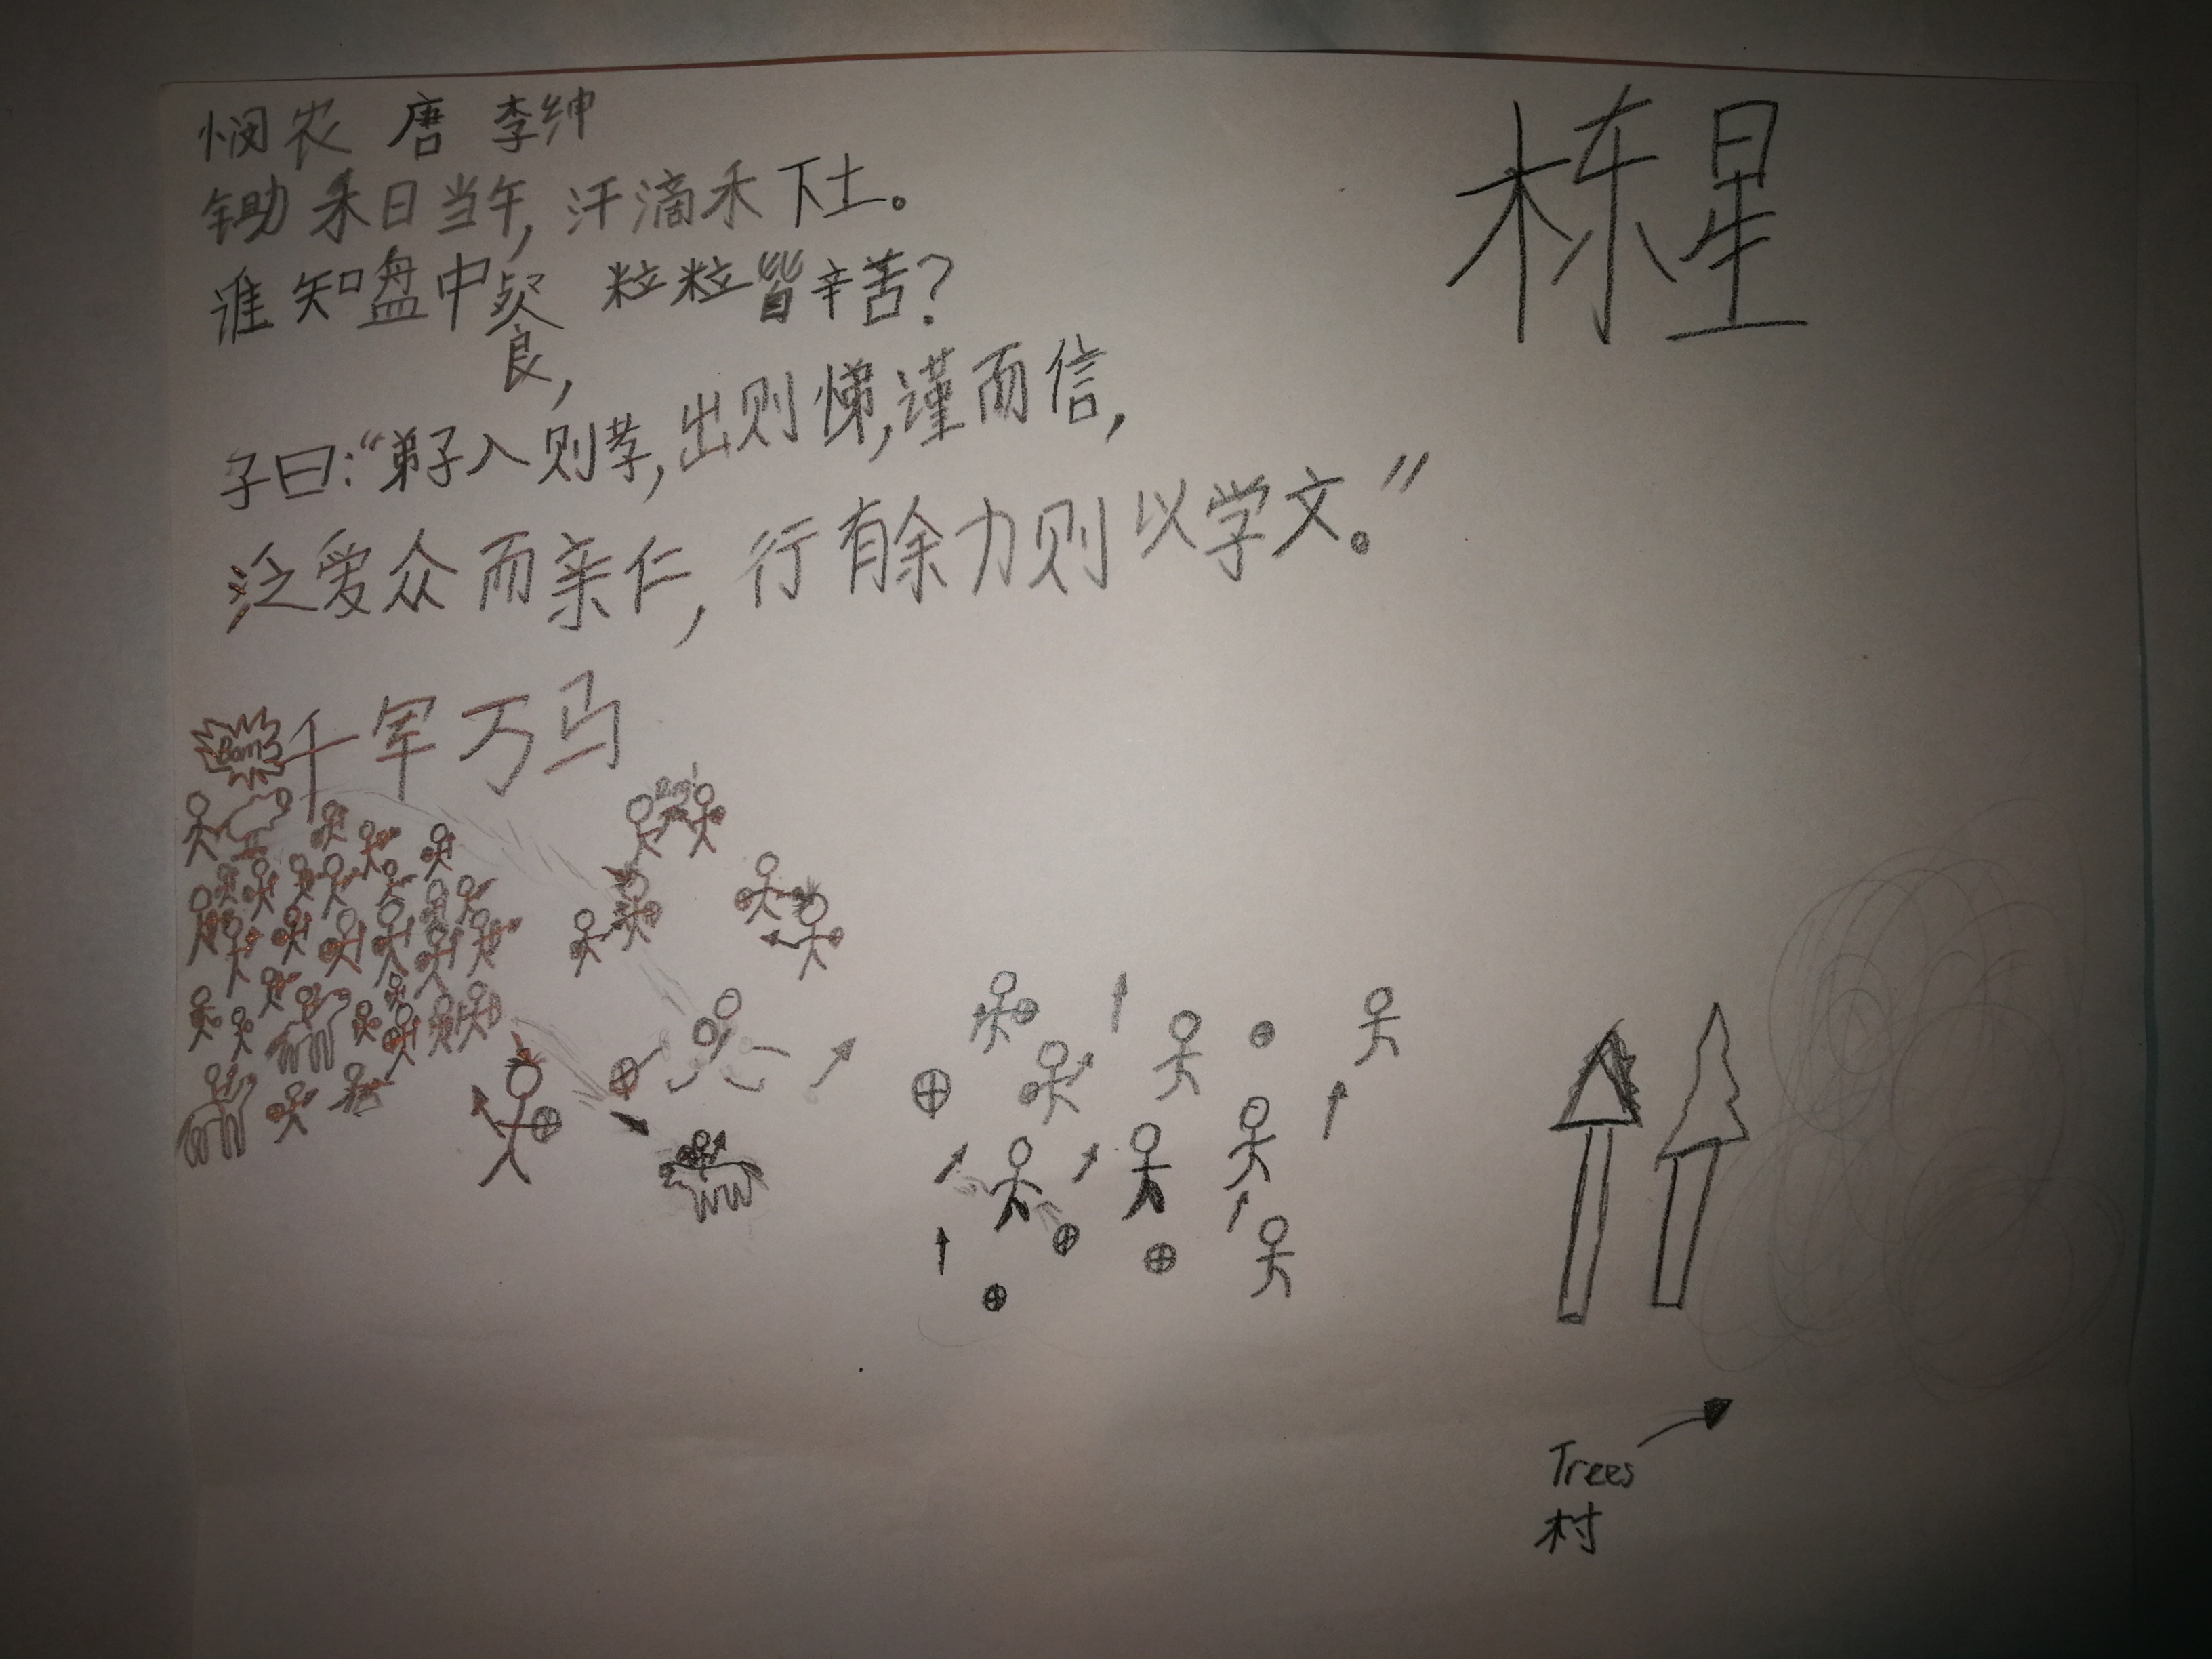 悯农 唐 李绅
锄禾日当午,汗滴禾下土。
谁知盘中餐,粒粒皆辛苦?
子曰:“弟子入则孝,出则悌,谨而信,
泛爱众而亲仁,行有余力则以学文。”
栋星
千军万马
Bam
Trees
村